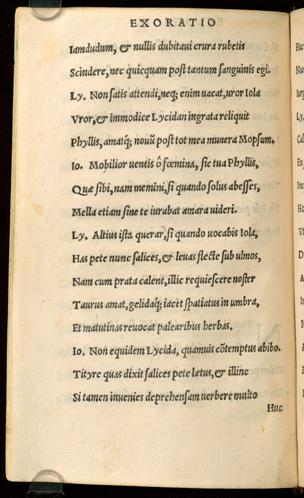 EXORATIO
Iamdudum, & nullis dubitaui crura rubetis
Scindere, nec quicquam post tantum sanguinis egi.
Ly. Non satis attendi, neq; enim uacat, uror Iola
Vror, & immodice Lycidan ingrata reliquit
Phyllis, amatq́; nouũ post tot mea munera Mopsum.
Io. Mobilior uentis ô fœmina, sic tua Phyllis,
Quæ sibi, nam memini, si quando solus abesses,
Mella etiam sine te iurabat amara uideri.
Ly. Altius ista querar, si quando uocabis Iola,
Has pete nunc salices, & leuas flecte sub ulmos,
Nam cum prata calent, illic requiescere noster
Taurus amat, gelidaq́; iacet spatiatus in umbra,
Et matutinas reuocat palearibus herbas.
Io. Non equidem Lycida, quamuis cõtemptus abibo.
Tityre quas dixit salices pete lætus, & illinc
Si tamen inuenies deprehensam uerbere multo
Huc